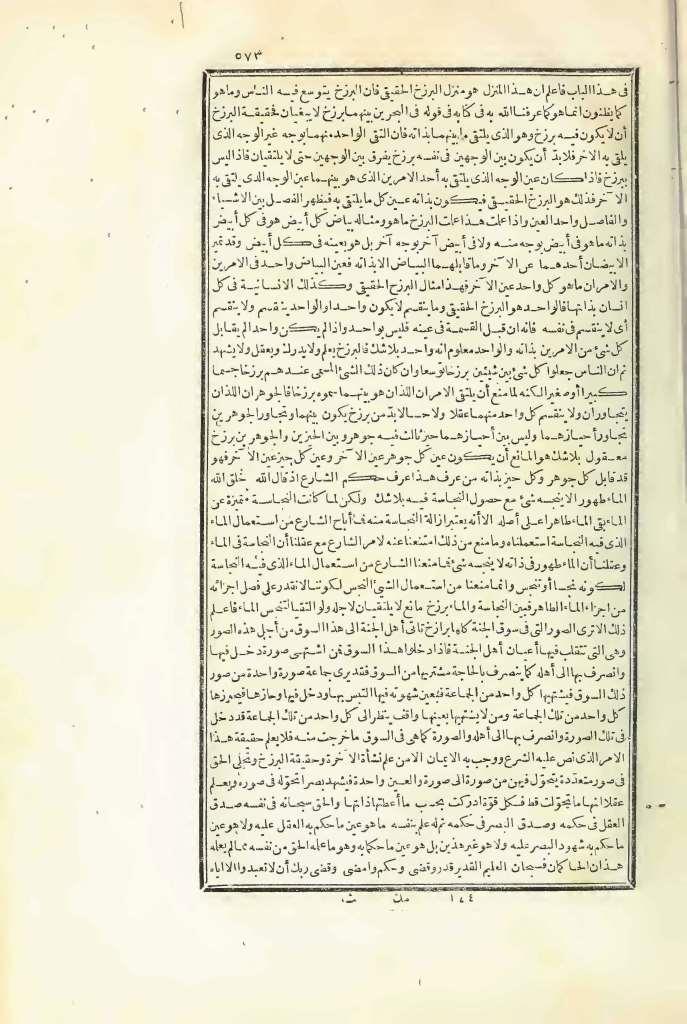 ٥٧٣
فى هذا الباب فاعلم ان هذا المنزل هو منزل البرزخ الحقيقى فان البرزخ يتوسع فيه الناس وما هو
كما يظنون انما هو كما عرفنا الله به فى كتابه فى قوله فى البحرين بينهما برزخ لا يبغيان فحقيقة البرزخ
أن لا يكون فيه برزخ وهو الذى يلتقى ما بينهما بذاته فان التقى الواحد منهما بوجه غير الوجه الذى
يلقى به الآخر فلابد أن يكون بين الوجهين فى نفسه برزخ يفرق بين الوجهين حتى لا يلتقيان فاذا ليس
ببرزخ فاذا كان عين الوجه الذى يلتقى به أحد الامرين الذى هو بينهما عين الوجه الذى يلتقى به
الآخر فذلك هو البرزخ الحقيقى فيكون بذاته عين كل ما يلتقى به فيظهر الفصل بين الاشياء
والفاصل واحد العين واذا علمت هذا علمت البرزخ ما هو ومثاله بياض كل أبيض هو فى كل أبيض
بذاته ما هو فى أبيض بوجه منه ولا فى أبيض آخر بوجه آخر بل هو بعينه فى كل أبيض وقد تميز
الابيضان أحدهما عن الآخر وما قابلهما البياض الا بذاته فعين البياض واحد فى الامرين
والامران ما هو كل واحد عين الآخر فهذا مثال البرزخ الحقيقى وكذلك الانسانية فى كل
انسان بذاتها فالواحد هو البرزخ الحقيقى وما ينقسم لا يكون واحدا والواحد ينقسم ولا ينقسم
أى لا ينقسم فى نفسه فانه ان قبل القسمة فى عينه فليس بواحد واذا لم يكن واحدا لم يقابل
كل شئ من الامرين بذاته والواحد معلوم انه واحد بلا شك فالبرزخ يعلم ولا يدرك ويعقل ولا يشهد
ثم ان الناس جعلوا كل شئ بين شيئين برزخا توسعا وان كان ذلك الشئ المسمى عندهم برزخا جسما
كبيرا أو صغيرا لكنه لما منع أن يلتقى الامران اللذان هو بينهما سموه برزخا فالجوهران اللذان
يتجاوران ولا ينقسم كل واحد منهما عقلا ولا حسا لابد من برزخ يكون بينهما وتجاور الجوهرين
تجاور أحيازهما وليس بين أحيازهما حيز ثالث فيه جوهر وبين الحيزين والجوهرين برزخ
معقول بلا شك هو المانع أن يكون عين كل جوهر عين الآخر وعين كل حيز عين الآخر فهو
قد قابل كل جوهر وكل حيز بذاته من عرف هذا عرف حكم الشارع اذ قال الله خلق الله
الماء طهور الا ينجسه شئ مع حصول النجاسة فيه بلا شك ولكن لما كانت النجاسة متميزة عن
الماء بقى الماء طاهرا على أصله الا أنه يعتبر ازالة النجاسة منه فما أباح الشارع من استعمال الماء
الذى فيه النجاسة استعملناه وما منع من ذلك امتنعنا عنه لامر الشارع مع عقلنا أن النجاسة فى الماء
وعقلنا أن الماء طهور فى ذاته لا ينجسه شئ فما منعنا الشارع من استعمال الماء الذى فيه النجاسة
لكونه نجسا أو تنجس وانما منعنا من استعمال الشئ النجس لكوننا لا نقدر على فصل اجزائه
من اجزاء الماء الطاهر فبين النجاسة والماء برزخ مانع لا يلتقيان لاجله ولو التقيا لتنجس الماء فاعلم
ذلك الا ترى الصور التى فى سوق الجنة كلها برازخ تأتى أهل الجنة الى هذا السوق من أجل هذه الصور
وهى التى تتقلب فيها أعيان أهل الجنة فاذا دخلوا هذا السوق فمن اشتهى صورة دخل فيها
وانصرف بها الى أهله كما ينصرف بالحاجة مشتريها من السوق فقد يرى جماعة صورة واحدة من صور
ذلك السوق فيشتهيها كل واحد من الجماعة فبعين شهوته فيها التبس بها ودخل فيها وحازها فيحوزها
كل واحد من تلك الجماعة ومن لا يشتهيها بعينها واقف ينظر الى كل واحد من تلك الجماعة قد دخل
فى تلك الصورة وانصرف بها الى أهله والصورة كما هى فى السوق ما خرجت منه فلا يعلم حقيقة هذا
الامر الذى نص عليه الشرع ووجب به الايمان الا من علم نشأة الآخرة وحقيقة البرزخ وتجلى الحق
فى صور متعددة يتحول فيهن من صورة الى صورة والعين واحدة فيشهد بصرا تحوله فى صوره ويعلم
عقلا انها ما تحولت قط فكل قوة ادركت بحسب ما أعطتها ذاتها والحق سبحانه فى نفسه صدق
العقل فى حكمه وصدق البصر فى حكمه ثم له علم بنفسه ما هو عين ما حكم به العقل عليه ولا هو عين
ما حكم به شهود البصر عليه ولا هو غير هذين بل هو عين ما حكما به وهو ما علمه الحق من نفسه مما لم يعلمه
هذان الحاكمان فسبحان العليم القدير قدر وقضى وحكم وامضى وقضى ربك أن لا تعبدوا الا اياه
١٧٤ مك ث